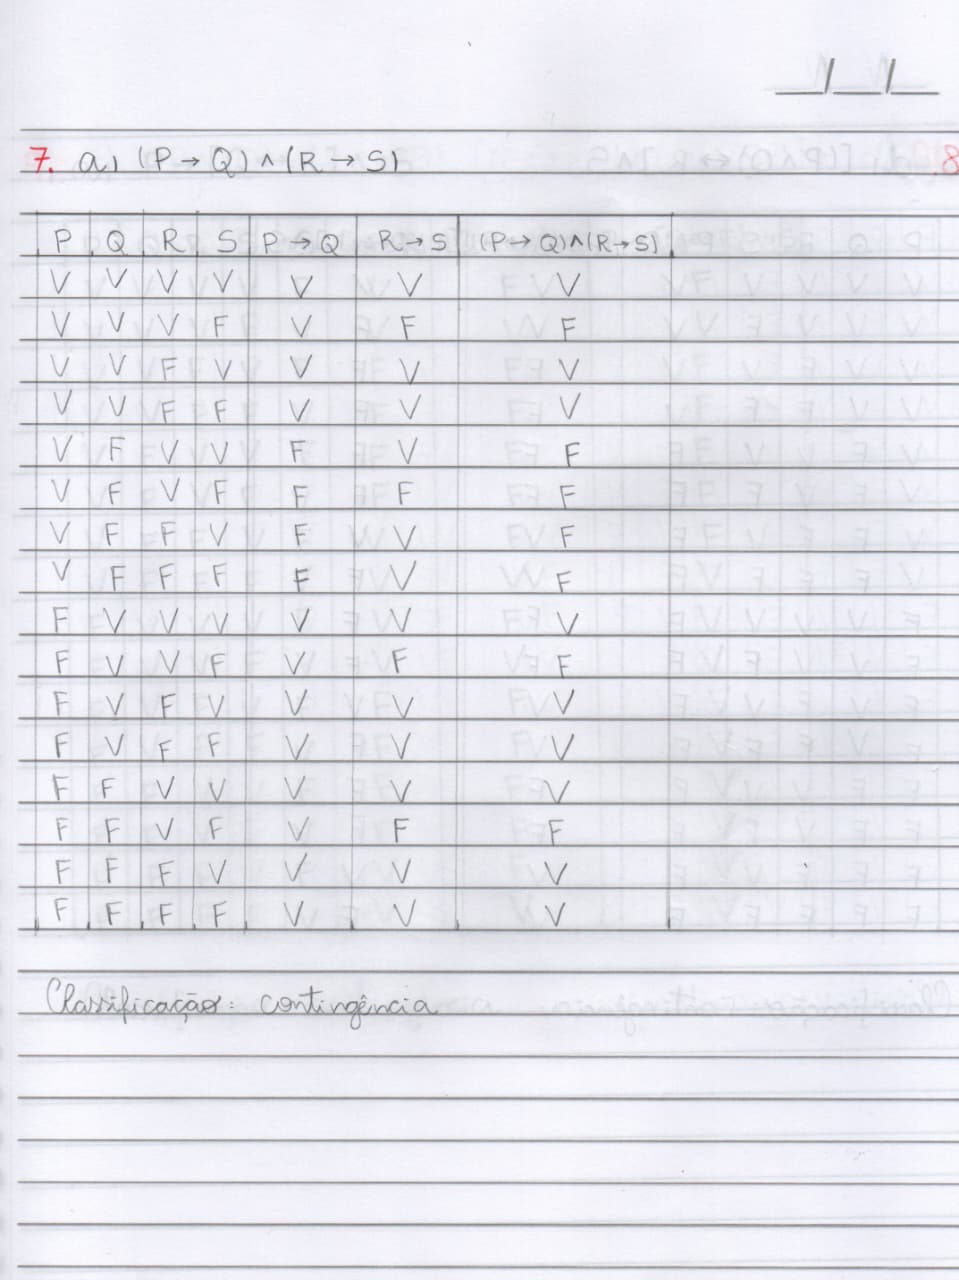 __/__/__
7. a) (P → Q) ∧ (R → S)
P Q R S P → Q R → S (P → Q) ∧ (R → S)
V V V V V V V
V V V F V F F
V V F V V V V
V V F F V V V
V F V V F V F
V F V F F F F
V F F V F V F
V F F F F V F
F V V V V V V
F V V F V F F
F V F V V V V
F V F F V V V
F F V V V V V
F F V F V F F
F F F V V V V
F F F F V V V
Classificação: contingência